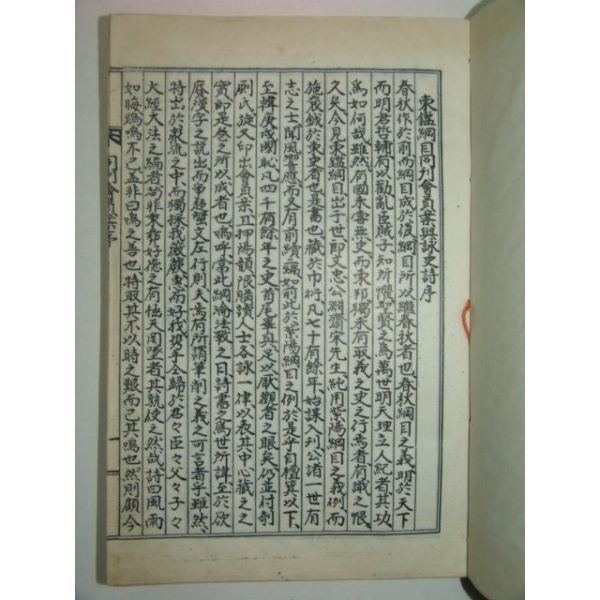 東鑑綱目同刊會員案與詠史詩序
春秋作於前而綱目成於後綱目所以繼春秋者也春秋綱目之義明於天下
而明君哲輔有以勸亂臣賊子知所懼聖賢之爲萬世明天理立人紀者其功
爲如何哉雖然有國未嘗無史而東邦獨未有義之史之行焉者有識之恨
久矣今見東鑑綱目出于世卽文忠公淵齋宋先生純用紫陽綱目之義例而
施袞鉞於東史者也是書也藏於巾衍凡七十有餘年始謀入刊公諸一世有
志之士聞風響應而又有前續二編如前此於紫陽綱目之例於是乎自檀箕以下
至韓庚戌國恥凡四千有餘年之史首尾畢具足以厭觀者之眼矣仍並付剞
劂氏旋又印出會員案且押陽韻限牋讀人士各詠一律以表其中心藏之之
實卽是卷之所以成者也嗚呼當此綱淪法斁之日詩書之爲世所諱至於欲
廢漢字之說出而爭趨蟹文左行則夫焉有所謂筆削之義之可言者乎雖然
特出於衆流之中而獨採我薇蕨惠而好我携手全歸於君々臣々父々子々
大經大法之編者若非秉彝好德之有在天罔墜者其孰使之然哉詩曰風雨
如晦鷄鳴不已盖非曰鳴之善也特取其不以時之艱而已其鳴也然則顧今
同刊會員案序
一